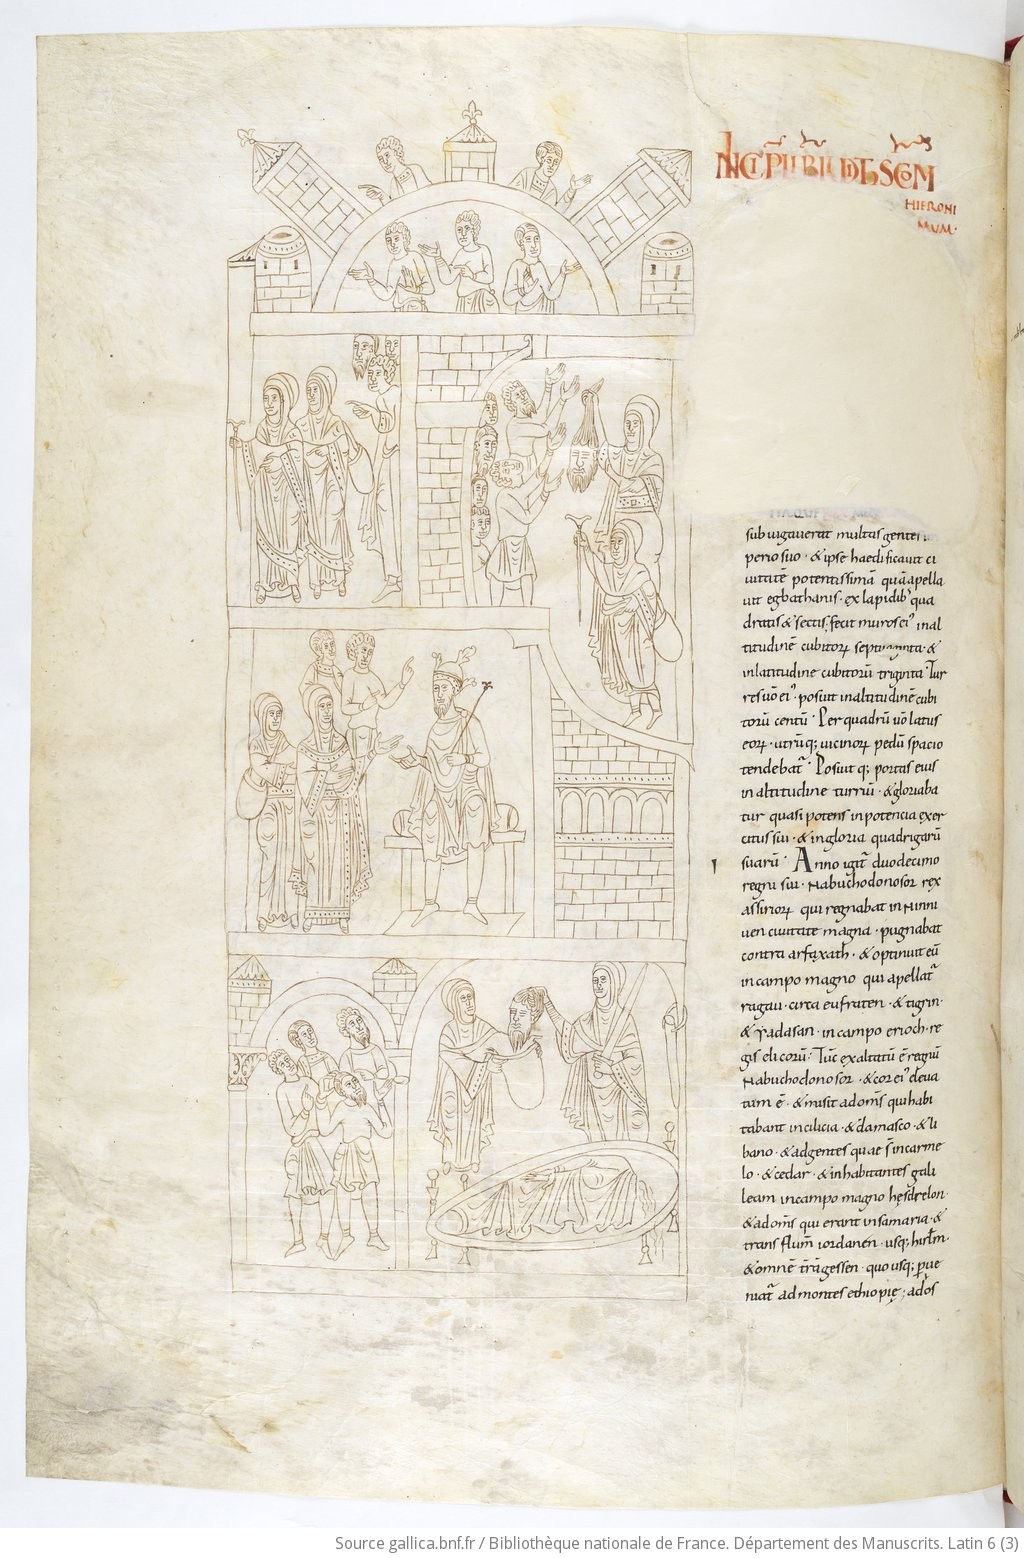 HIERONI
MUM·
sub iugauerat multas gentes
perio suo · & ipse haedificauit ci
uitatē potentissimā quā apella
uit egbathanis · ex lapidib' qua
dratis & sectis; fecit muros ei' in al
titudinē cubitoꝝ septuaginta · &
in latitudine cubitorū triginta · Tur
res uō ei' · posuit in altitudinē cubi
torū centū · Per quadrū uō latus
eoꝝ · utrūq; uicinoꝝ pedū spacio
tendebat᷑ · Posuit q; portas eius
in altitudine turriū · & gloriaba
tur quasi potens in potencia exer
citus sui · & in gloria quadrigarū
suarū · Anno igit᷑ duodecimo
regni sui · Nabuchodonosor rex
assirioꝝ qui regnabat in Ninni
uen ciuitate magna · pugnabat
contra arfaxath · & optinuit eū
in campo magno qui apellat᷑
ragau · circa eufraten · & tigrin ·
& Yadasan · in campo erioch · re
gis elicorū · Tūc exaltatū ē regnū
Nabuchodonosor · & cor ei' eleua
tum ē · & misit ad om̄s qui habi
tabant in cilicia · & damasco · & li
bano · & ad gentes quae s̄ in carme
lo · & cedar · & inhabitantes gali
leam in campo magno hesdrelon ·
& ad om̄s qui erant in samaria · &
trans flum̄ iordanen · usq; hierł̄m ·
& omnē trā gessen · quo usq; ꝑue
niat᷑ ad montes ethiopię ; ad os
Source gallica.bnf.fr / Bibliothèque nationale de France. Département des Manuscrits. Latin 6 (3)